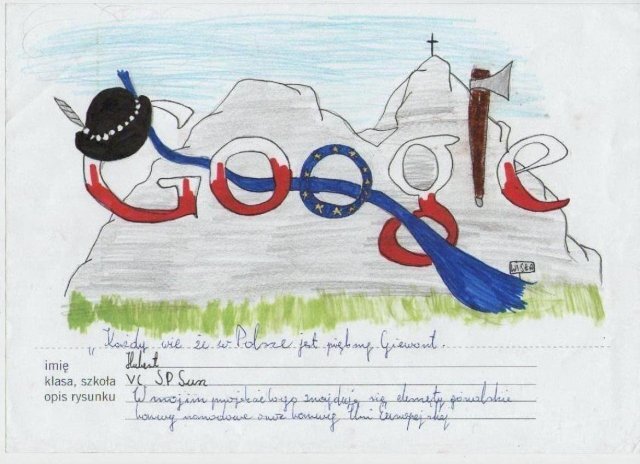 Google
WISŁA
"Każdy wie że w Polsce jest piękny Giewont.
imię Hubert
klasa, szkoła VC SP Sun
opis rysunku W moim projekcie logo znajdują się elementy góralskie
barwy narodowe oraz barwy Unii Europejskiej